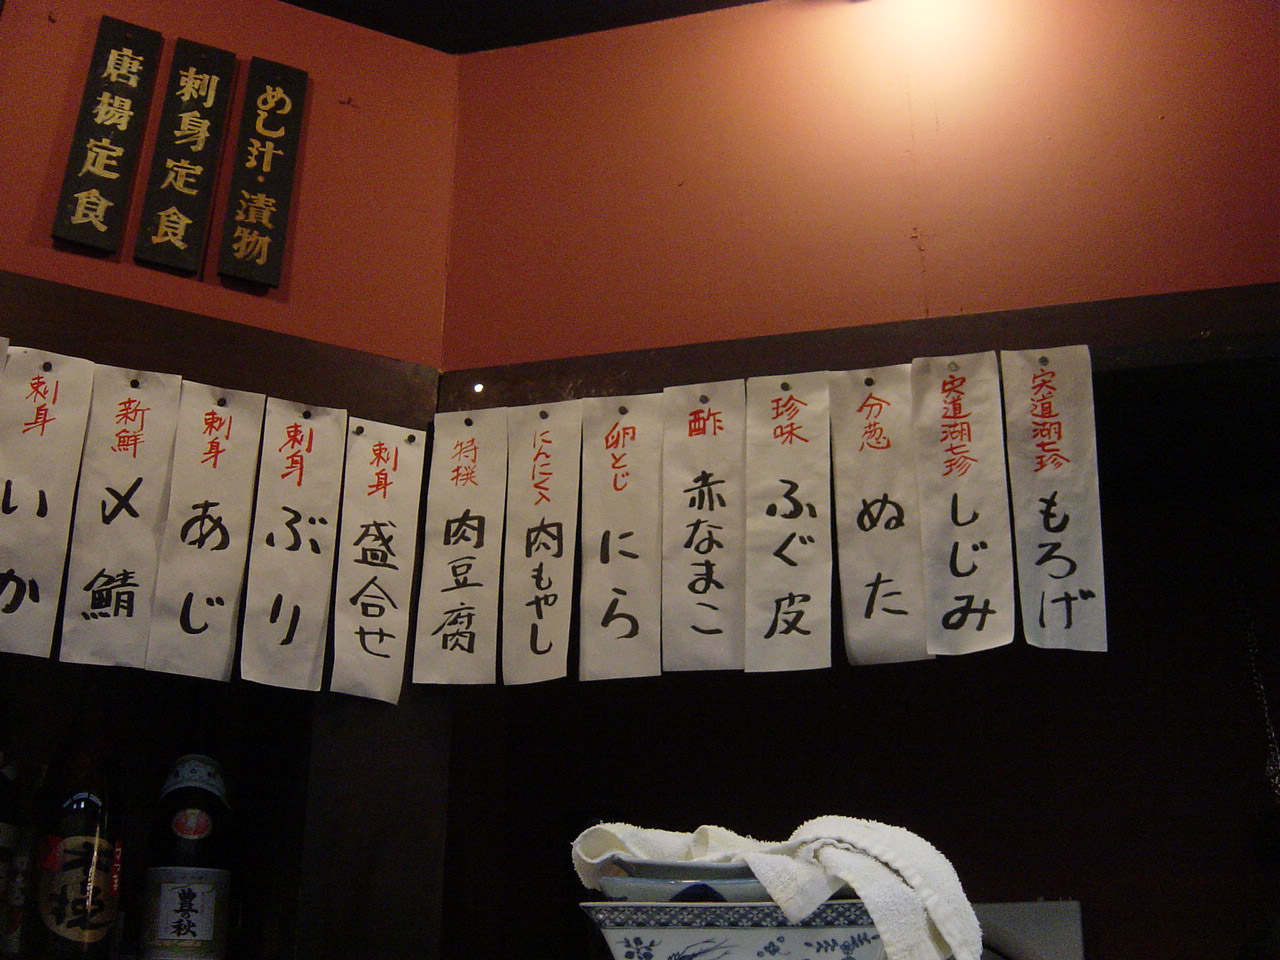 めし汁・漬物
刺身定食
唐揚定食
宍道湖七珍 もろげ
宍道湖七珍 しじみ
分葱 ぬた
珍味 ふぐ皮
酢 赤なまこ
卵とじ にら
にんにく入 肉もやし
特撰 肉豆腐
刺身 盛合せ
刺身 ぶり
刺身 あじ
新鮮 〆鯖
刺身 いか
豊の秋